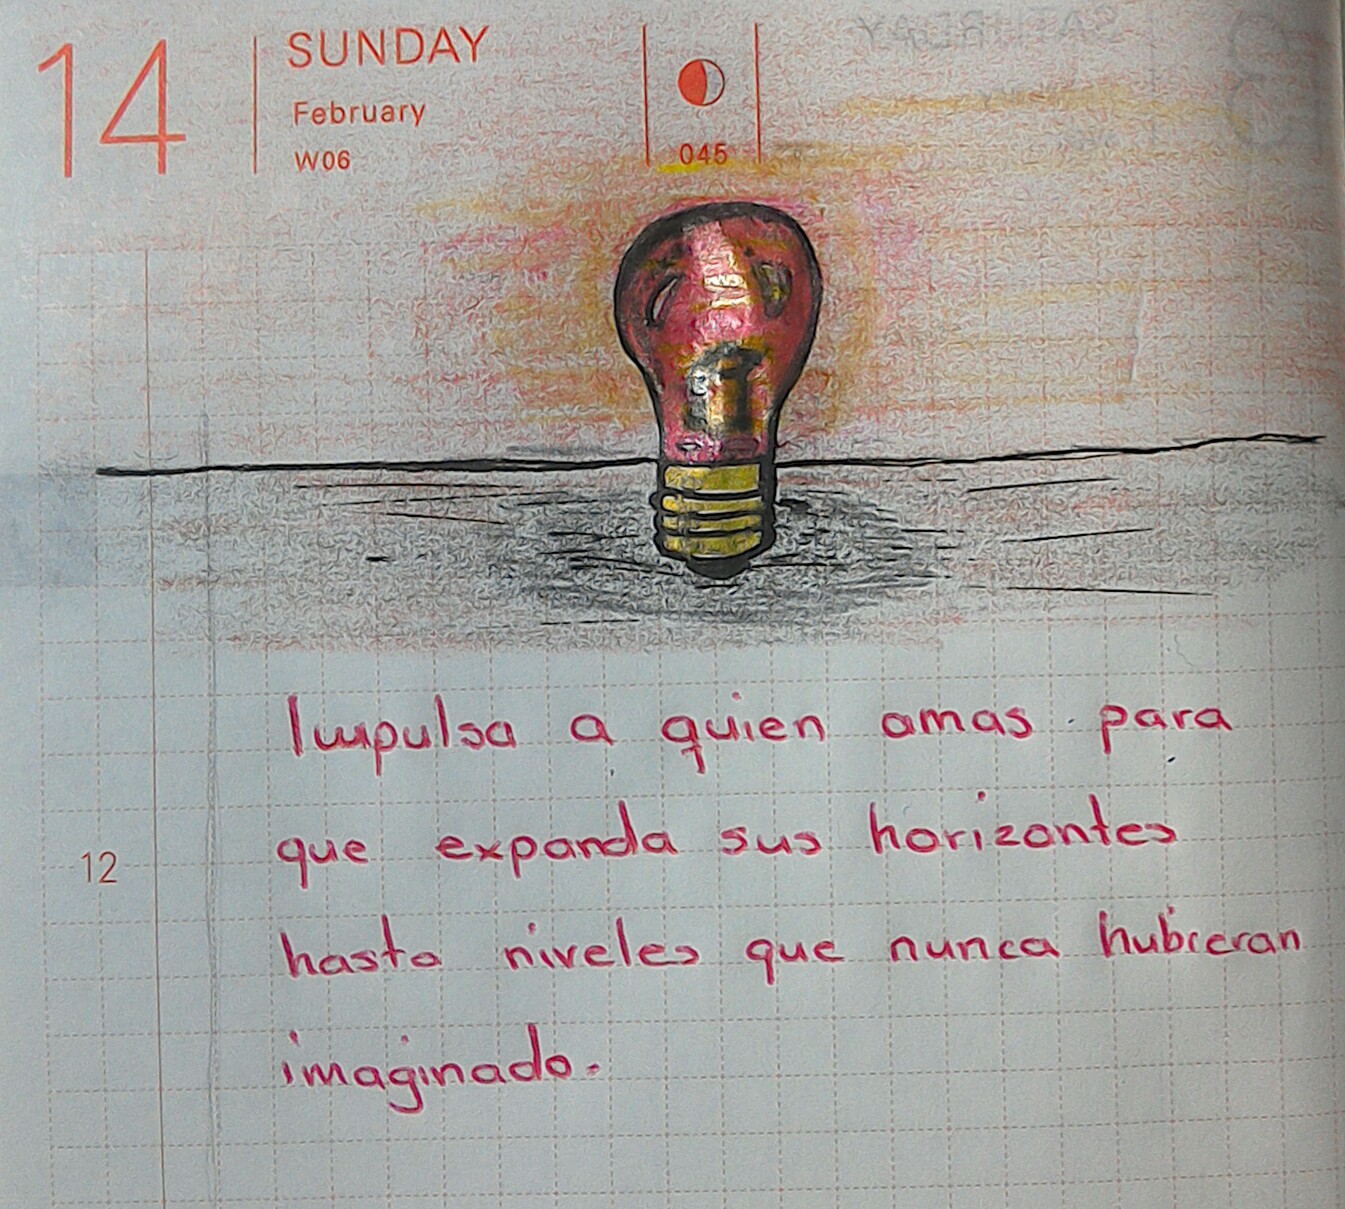 14
SUNDAY
February
W06
045
SATURDAY
Impulsa a quien amas para
que expanda sus horizontes
12
hasta niveles que nunca hubieran
imaginado.